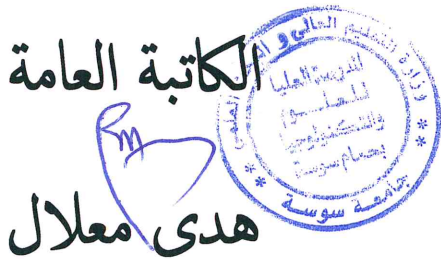 الكاتبة العامة
وزارة التعليم العالي و البحث العلمي
المدرسة العليا
للعلوم
والتكنولوجيا
بحمام سوسة
جامعة سوسة
هدى معلال